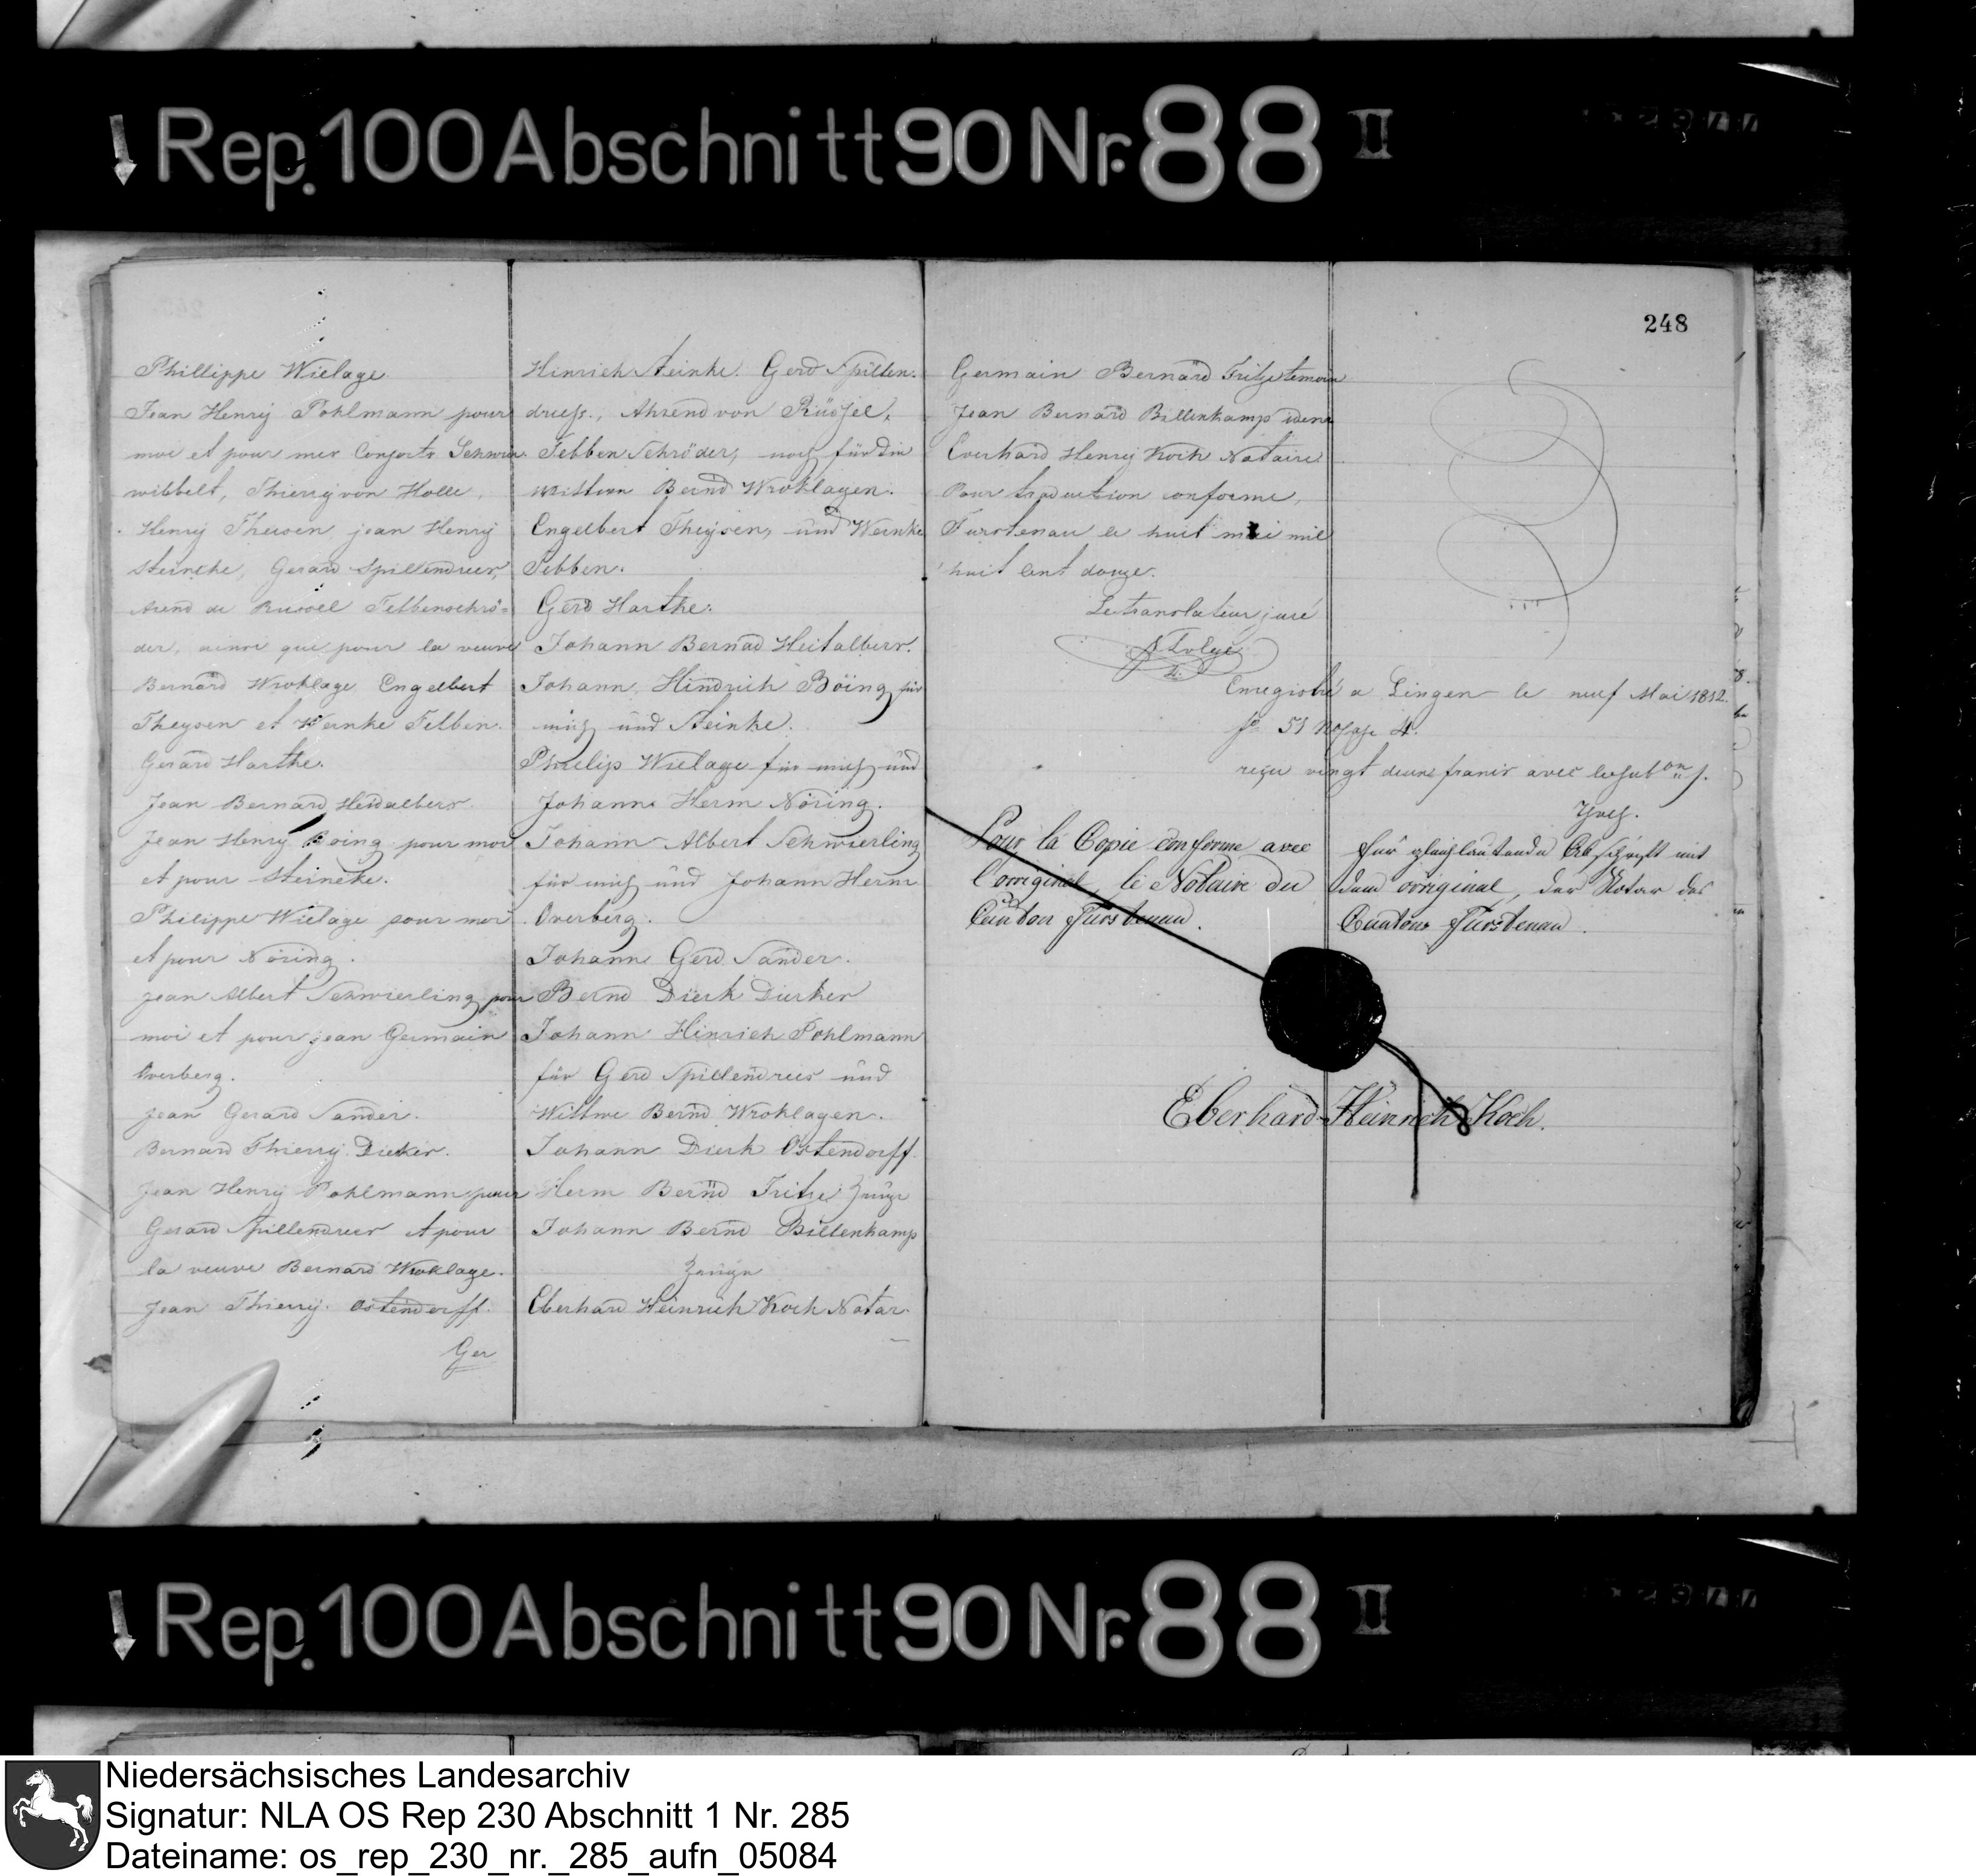 Rep. 100 Abschnitt 90 Nr. 88 II
248
Phillippe Wielage.
Jean Henry Pohlmann pour
moi et pour mes Consorts Schwie
wibbelt, Thierry von Holle,
Henry Theisen, jean Henry
Steineke, Gerard Spillendreer,
Arend de Russel Tebbenschrö-
der, ainsi que pour la veuve
Bernard Wroklage Engelbert
Theysen et Wernke Tebben.
Gerard Harthe.
Jean Bernard Heidalbers.
Jean Henry Boing pour moi
et pour Steineke.
Philippe Wielage pour moi
et pour Nöring.
jean Albert Schwierling pour
moi et pour jean Germain
Overberg.
jean Gerard Sander.
Bernard Thierry Dieker.
Jean Henry Pohlmann pour
Gerard Spillendreer et pour
la veuve Bernard Wroklage.
Jean Thierry Ostendorff.
Ger
Hinrich Steinke. Gerd Spillen-
druss., Ahrend von Rüssel,
Tebben Schröder, noch für die
Wittwe Bernd Wroklagen.
Engelbert Theysen, und Wernke
Tebben.
Gerd Harthe.
Johann Bernad Heitalbers.
Johann Hindrich Böing für
mich und Steinke.
Philip Wielage für mich und
Johann Herm Nöring.
Johann Albert Schwierling
für mich und Johann Herm
Overberg.
Johann Gerd Sander.
Bernd Dierk Dierker
Johann Hinrich Pohlmann
für Gerd Spillendreis und
Wittwe Bernd Wroklagen.
Johann Dierk Ostendorff.
Herm Bernd Fritze Zeuge
Johann Bernd Billenkamp
Zeuge
Eberhard Heinrich Koch Notar
Germain Bernard Fritze temoin
Jean Bernard Billenkamp idem
Everhard Henry Koch Notaire
Pour traduction conforme,
Furstenau le huit mai mil
huit cent douze.
Le translateur juré
Enregistré a Lingen le neuf Mai 1812.
fo 51 4.
reçu vingt deux francs avec
Pour la Copie conforme avec
l'original, le Notaire du
Canton Fürstenau.
für gleichlautende Abschrift mit
dem original, der Notar des
Cantons Fürstenau.
Eberhard Heinrich Koch.
Rep. 100 Abschnitt 90 Nr. 88 II
Niedersächsisches Landesarchiv
Signatur: NLA OS Rep 230 Abschnitt 1 Nr. 285
Dateiname: os_rep_230_nr._285_aufn_05084